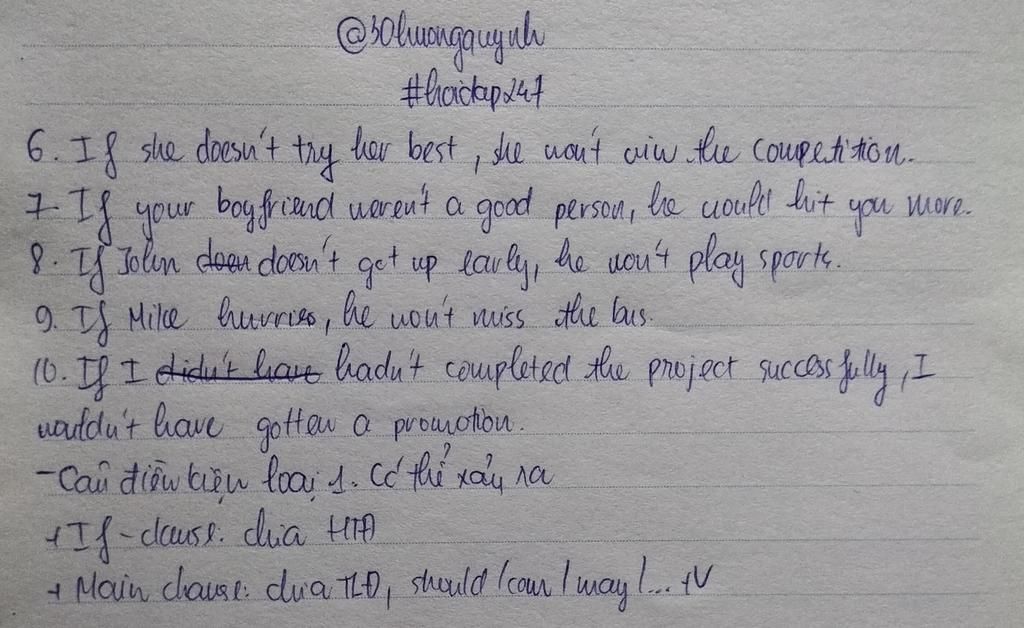 @30huongquynh
#hoidap247
6. If she doesn't try her best, she won't win the competition.
7. If your boyfriend weren't a good person, he would hit you more.
8. If John doesn't get up early, he won't play sports.
9. If Mike hurries, he won't miss the bus.
10. If I didn't have hadn't completed the project successfully, I
wouldn't have gotten a promotion.
- Câu điều kiện loại 1. Có thể xảy ra
+ If-clause: chia HTĐ
+ Main clause: chia TLĐ, should/can/may/... +V